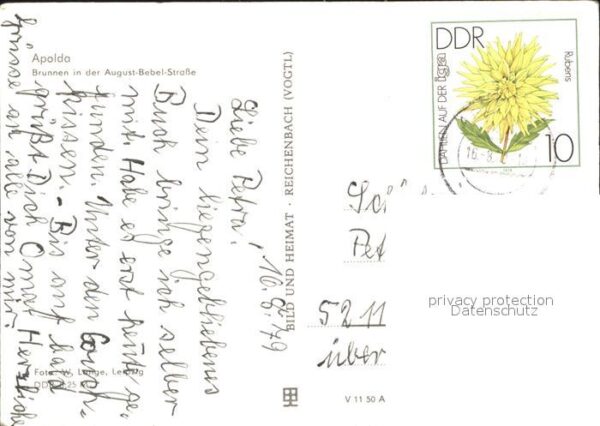 Apolda
Brunnen in der August-Bebel-Straße
16.8.79
Liebe Petra!
Dein liegengebliebenes
Buch bringe ich selber
mit. Habe es erst heute ge-
funden. Unter den Couch-
kissen. - Bis auf bald
grüßt Dich Oma! Herzliche
Grüsse an alle von mir!
Foto: W. Lange, Leipzig
BILD UND HEIMAT · REICHENBACH (VOGTL)
V 11 50 A
DDR
DAHLIEN AUF DER
Rubens
10
Pet
5211
über
privacy protection
Datenschutz